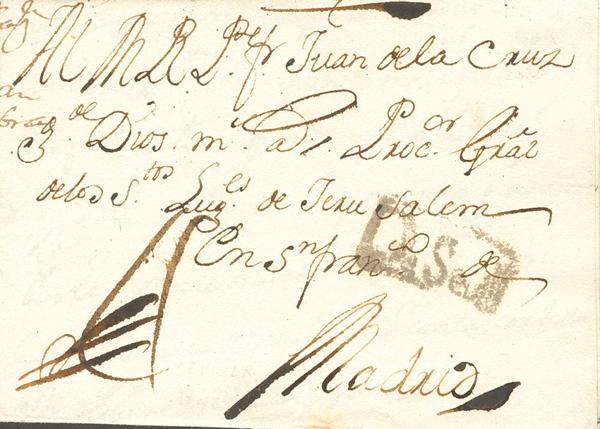 Al M R P.e fr Juan de la Cruz
g.de Dios m.s a.s Proc.or Gräl
de los S.tos Lug.es de Jerusalem
En S.n fran.co de
Madrid